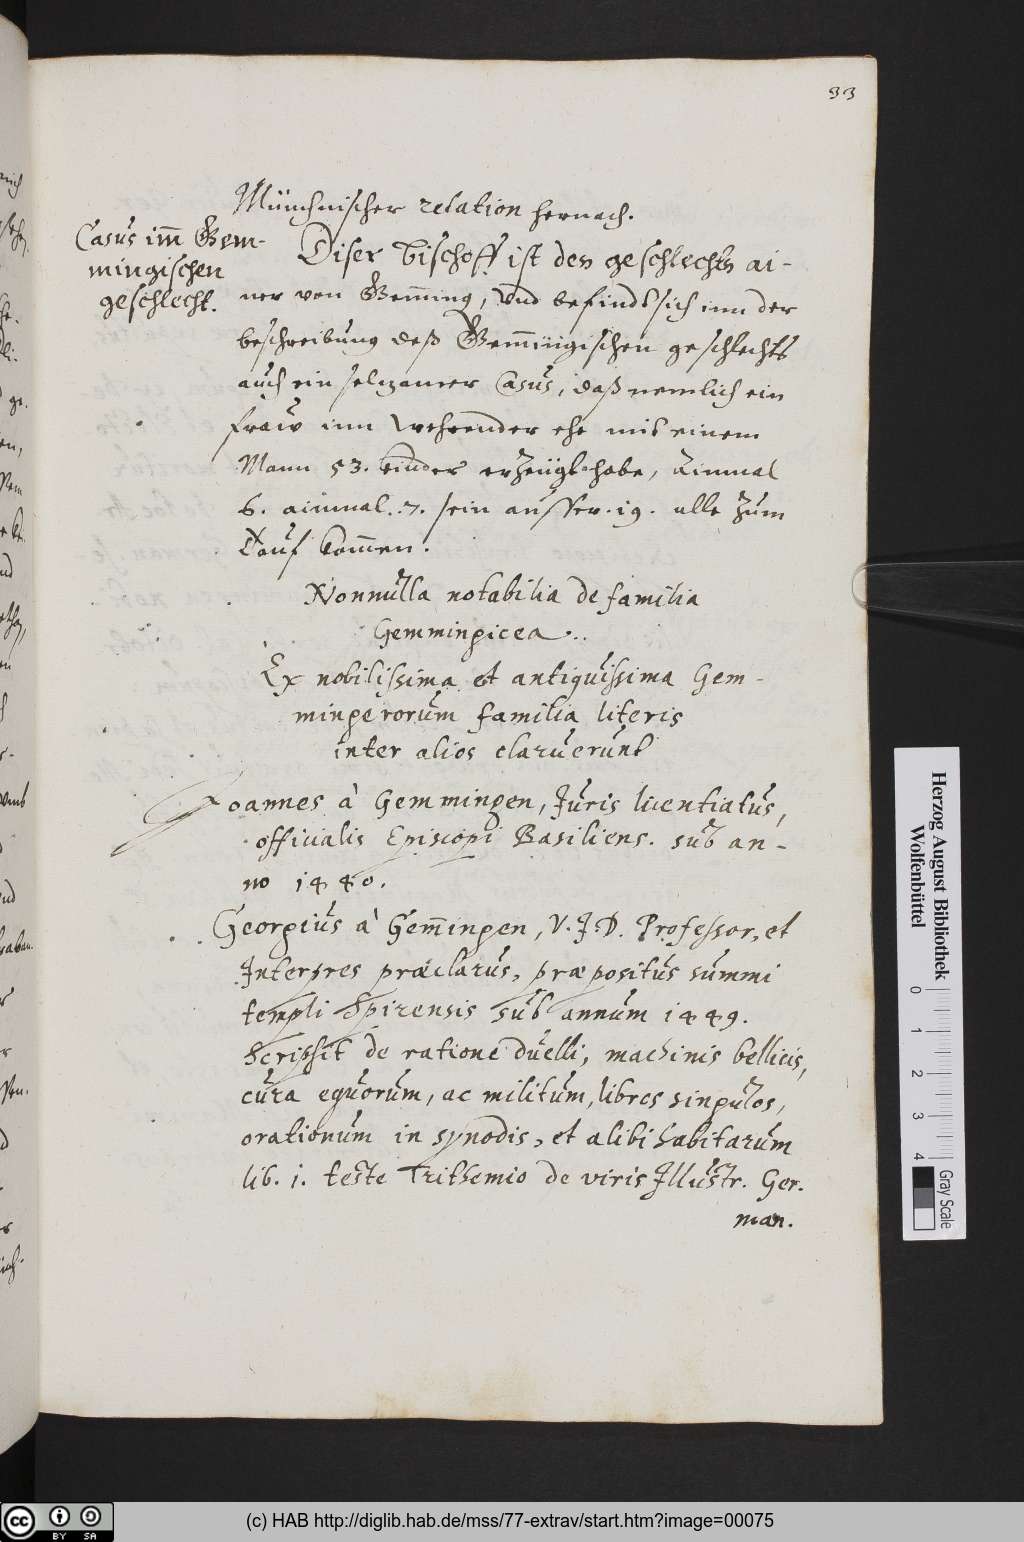 33
Münchnischer relation hernach.
Casus im̅ Gem-
mingischen
geschlecht.
Diser bischoff ist des geschlechts ai-
ner von Gem̅ing, Vnd befindt sich inn der
beschreibung deß Gem̅ingischen geschlechts
auch ein selzamer Casus, daß nemlich ein
fraw inn wehrender ehe mit einem
Mann 53. kinder erzeügt habe, Ainmal
6. ainmal. 7. sein ausser. 19. alle zum
Tauf kom̅en.
Nonnulla notabilia de familia
Gemmingicea.
Ex nobilissima et antiquissima Gem-
mingerorum familia literis
inter alios claruerunt
Joannes à Gemmingen, Juris licentiatus,
officialis Episcopi Basiliens. sub an-
no 1440.
Georgius à Gem̅ingen, V. J. D. Professor, et
Interpres præclarus, præpositus summi
templi Spirensis sub annum 1449.
Scripsit de ratione duelli, machinis bellicis,
cura equorum, ac militum, libros singulos,
orationum in synodis, et alibi habitarum
lib. i. teste Trithemio de viris Illustr. Ger.
man.
Herzog August Bibliothek
Wolfenbüttel
0 1 2 3 4
Gray Scale
cc BY SA
(c) HAB http://diglib.hab.de/mss/77-extrav/start.htm?image=00075